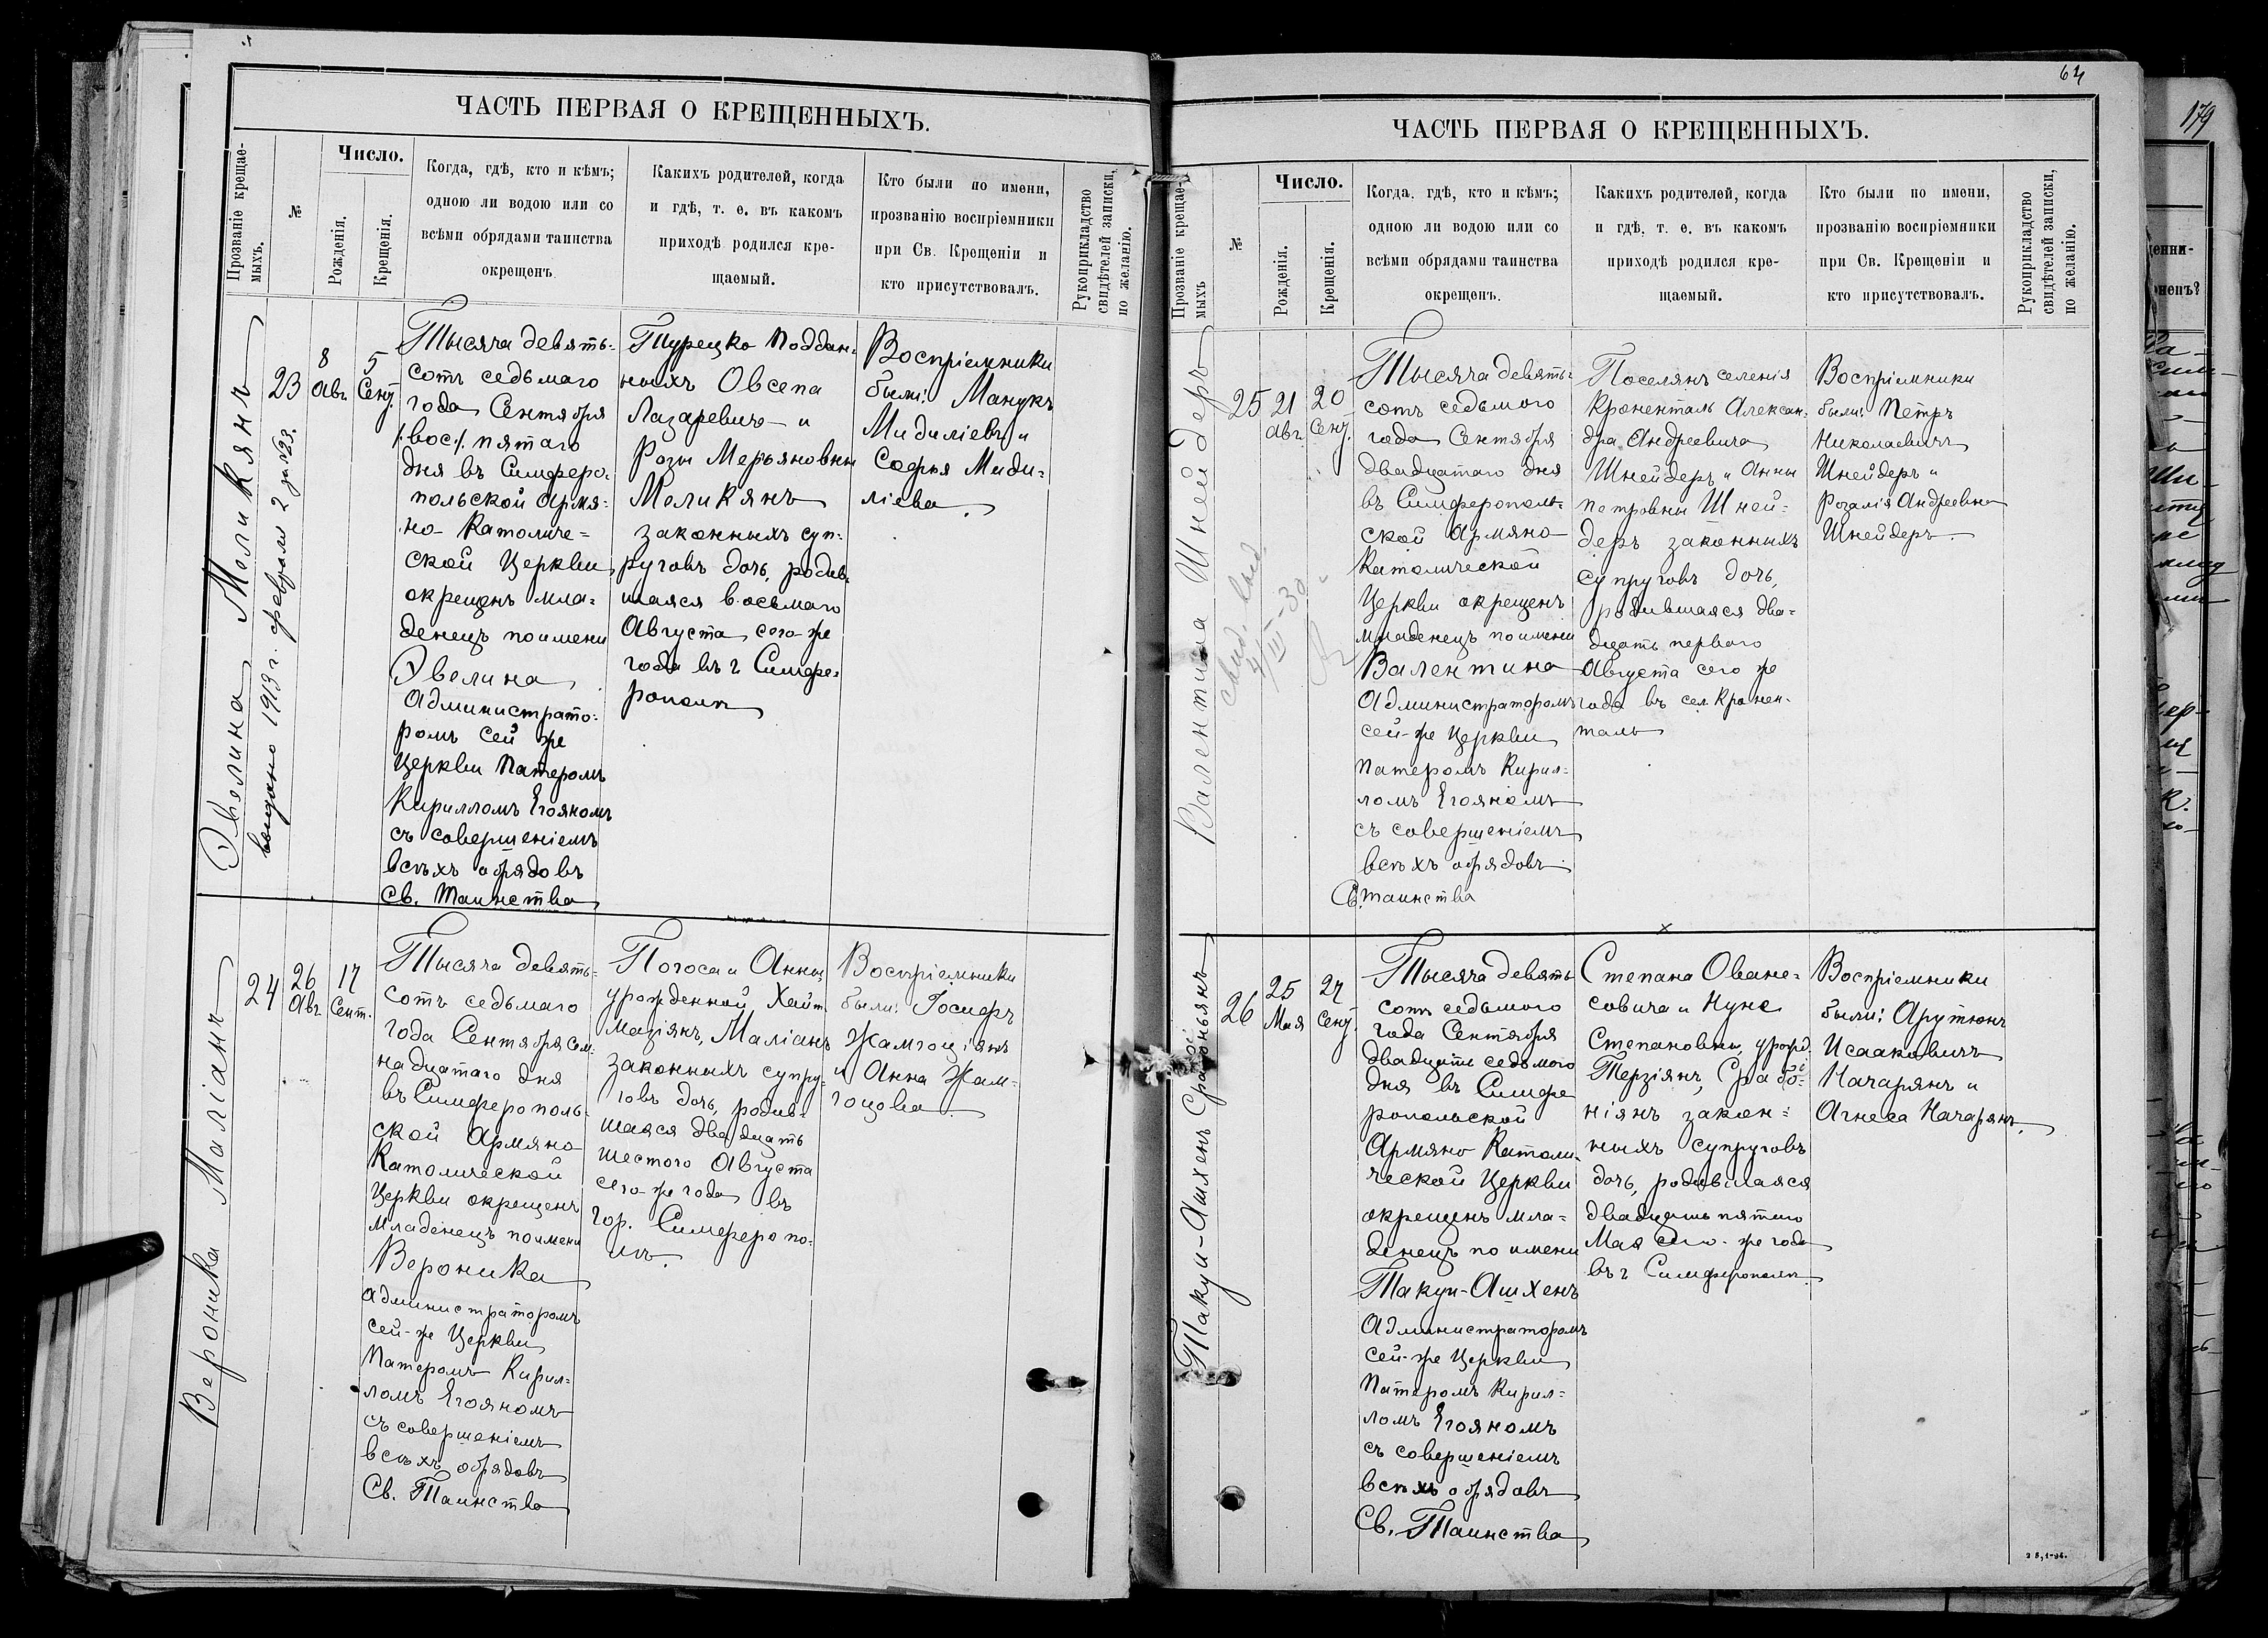 ЧАСТЬ ПЕРВАЯ О КРЕЩЕННЫХЪ.
Прозваніе крещае-
мыхъ.
№
Число.
Рожденія.
Крещенія.
Когда, гдѣ, кто и кѣмъ;
одною ли водою или со
всѣми обрядами таинства
окрещенъ.
Какихъ родителей, когда
и гдѣ, т. е. въ какомъ
приходѣ родился кре-
щаемый.
Кто были по имени,
прозванію воспріемники
при Св. Крещеніи и
кто присутствовалъ.
Рукоприкладство
свидѣтелей записки,
по желанію.
Эвелина Меликянъ
выдано 1913 г. февраля 2 за №33.
23
8
Авг.
5
Сент.
Тысяча девять-
сотъ седьмаго
года Сентября
/:вос:/ пятаго
дня въ Симферо-
польской Армя-
но-Католиче-
ской Церкви
окрещенъ мла-
денецъ по имени
Эвелина
Администрато-
ромъ сей же
Церкви Патеромъ
Кирилломъ Егояномъ
съ совершеніемъ
всѣхъ обрядовъ
Св. Таинства
Турецко поддан-
ныхъ Овсепа
Лазаревича и
Розы Мерьяновны
Меликянъ
законныхъ суп-
руговъ дочь, родив-
шаяся восьмаго
Августа сего-же
года въ г Симфе-
рополѣ
Воспріемники
были: Манукъ
Мидиліевъ и
Софья Миди-
ліева.
Вероника Маліанъ
24
26
Авг.
17
Сент.
Тысяча девять-
сотъ седьмаго
года Сентября сем-
надцатаго дня
въ Симферополь-
ской Армяно
Католической
Церкви окрещенъ
младенецъ по имени
Вероника
Администраторомъ
сей-же Церкви
Патеромъ Кирил-
ломъ Егояномъ
съ совершеніемъ
всѣхъ обрядовъ
Св. Таинства
Погоса и Анны,
урожденной Хайт
мазіянъ, Маліанъ
законныхъ супру-
говъ дочь, родив-
шаяся двадцать
шестого Августа
сего-же года въ
гор. Симферопо-
лѣ.
Воспріемники
были: Іосифъ
Жамгоціянъ
и Анна Жам-
гоцова.
64
ЧАСТЬ ПЕРВАЯ О КРЕЩЕННЫХЪ.
Прозваніе крещае-
мыхъ
№
Число.
Рожденія.
Крещенія.
Когда, гдѣ, кто и кѣмъ;
одною ли водою или со
всѣми обрядами таинства
окрещенъ.
Какихъ родителей, когда
и гдѣ, т. е. въ какомъ
приходѣ родился кре-
щаемый.
Кто были по имени,
прозванію воспріемники
при Св. Крещеніи и
кто присутствовалъ.
Рукоприкладство
свидѣтелей записки,
по желанію.
Валентина Шнейдеръ
25
21
Авг.
20
Сент.
Тысяча девять-
сотъ седьмого
года Сентября
двадцатаго дня
въ Симферополь-
ской Армяно
Католической
Церкви окрещенъ
младенецъ по имени
Валентина
Администраторомъ
сей-же Церкви
Патеромъ Кирил-
ломъ Егояномъ
съ совершеніемъ
всѣхъ обрядовъ
Св. таинства
Поселянъ селенія
Кроненталь Алексан-
дра Андреевича
Шнейдеръ и Анны
Петровны Шней-
деръ законныхъ
супруговъ дочь,
родившаяся два-
дцать перваго
Августа сего же
года въ сел. Кронен-
таль
Воспріемники
были: Петръ
Николаевичъ
Шнейдеръ и
Розалія Андреевна
Шнейдеръ.
Такуи-Ашхенъ
26
25
Мая
27
Сент.
Тысяча девять
сотъ седьмого
года Сентября
двадцать седьмого
дня въ Симфе
ропольской
Армяно Католи-
ческой Церкви
окрещенъ мла-
денецъ по имени
Такуи-Ашхенъ
Администраторомъ
сей-же Церкви
Патеромъ Кирил-
ломъ Егояномъ
съ совершеніемъ
всѣхъ обрядовъ
Св. Таинства
Степана Ованe-
совича и Нуне
Степановны, урожд.
Терзіянъ, Срабо-
ніянъ закон-
ныхъ супруговъ
дочь, родившаяся
двадцать пятаго
Мая сего-же года
въ г Симферополѣ.
Воспріемники
были: Арутюнъ
Исааковичъ
Начарянъ и
Агнеса Начарянъ.
179